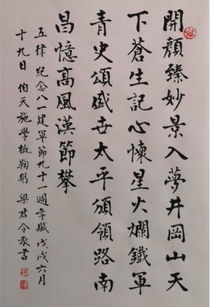 開顏臻妙景入夢井岡山天
下蒼生記心懷星火爛鐵軍
青史頌盛世太平頒領路南
昌憶高風漢節攀
五律紀念八一建軍節九十一週年歲戊戌六月
十九日 伯天施學概鞠躬 梁君令敬書